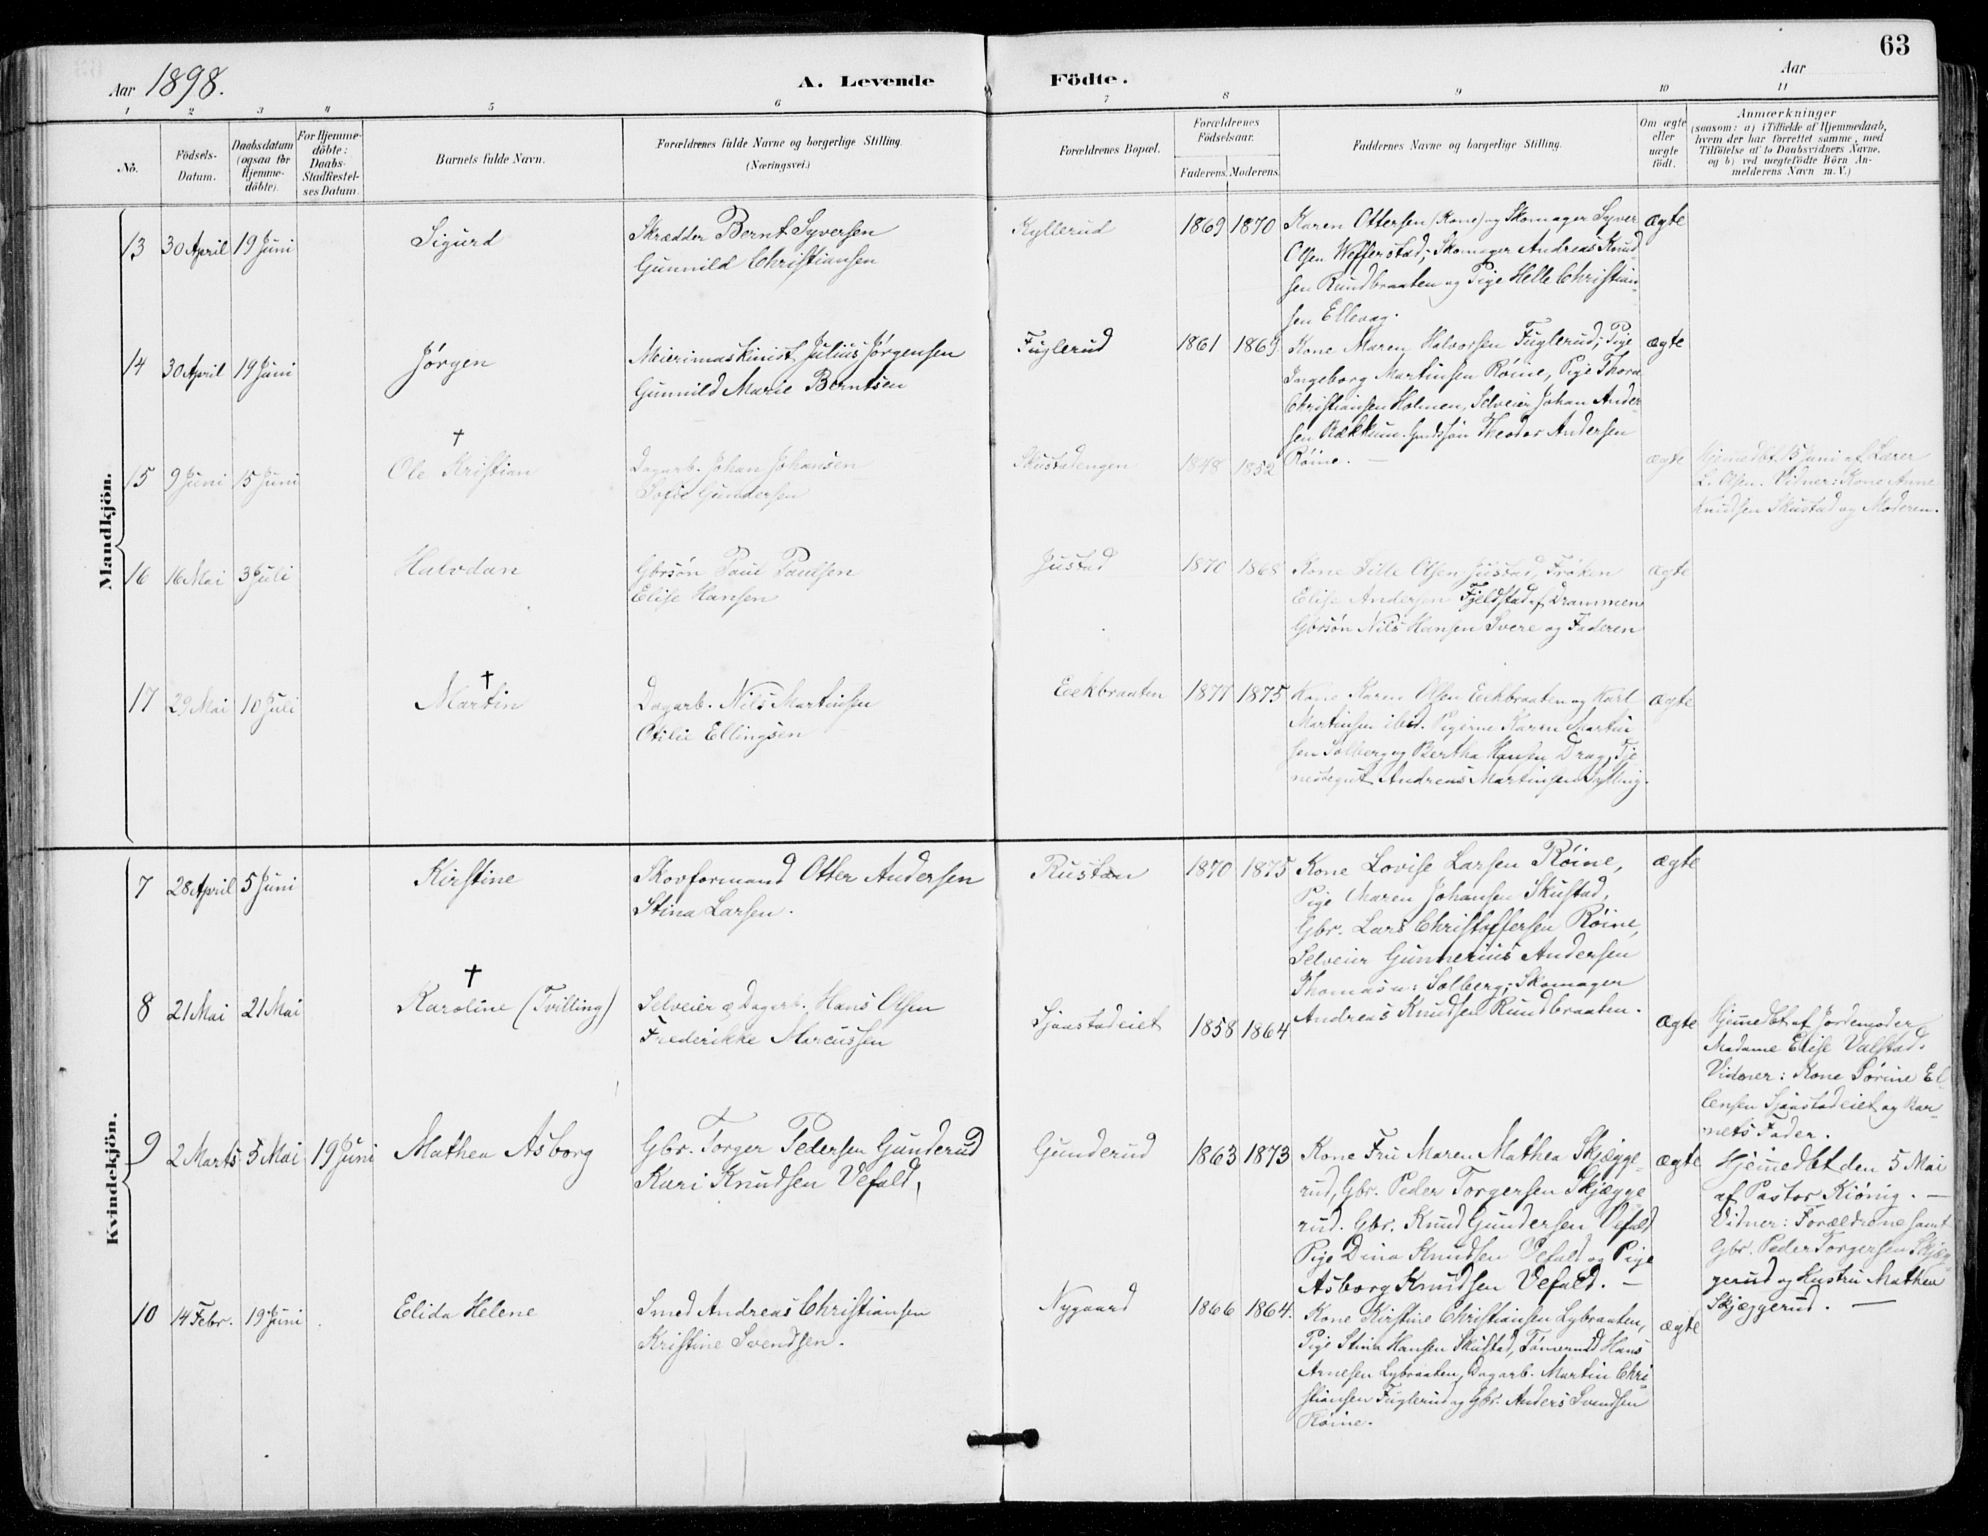 63
Aar 1898.
A. Levende Födte.
Aar
1 2 3 4 5 6 7 8 9 10 11
No.
Födsels-
Datum.
Daabsdatum
(ogsaa for
Hjemme-
döbte).
For Hjemme-
döbte:
Daabs-
Stadfæstel-
ses Datum.
Barnets fulde Navn.
Forældrenes fulde Navne og borgerlige Stilling.
(Næringsvei.)
Forældrenes Bopæl.
Forældrenes
Födselsaar.
Faderens. Moderens.
Faddernes Navne og borgerlige Stilling.
Om ægte
eller
uægte
født.
Anmærkninger
(saasom: a) i Tilfælde af Hjemmedaab,
hvem der har forrettet samme, med
Tilföielse af to Daabsvidners Navne,
og b) ved uegtefödte Börn An-
melderens Navn m. V.)
Mandkjön.
13 30 April 19 Juni
Sigurd
Skrædder Bernt Syversen
Gunnild Christiansen
Kyllerud
1869 1870
Karen Ottersen (Kone) og Skomager Syver
Olsen Wefferstad; Skomager Andreas Knud-
sen Rundbraaten og Pige Helle Christian-
sen Ellevag.
ægte
14 30 April 19 Juni
Jørgen
Meierimaskinist Julius Jørgensen
Gunnild Marie Berntsen
Fuglerud
1861 1869
Kone Maren Halvorsen Fuglerud; Pige
Ingeborg Martinsen Röine, Pige Thora
Christiansen Holmen, Selveier Johan Ander-
sen Bækkum. Theodor Andersen
Röine. —
ægte
15 9 Juni 15 Juni
†
Ole Kristian
Dagarb. Johan Johansen
Sofie Gundersen
Skustadengen
1848 1852
ægte
Hjemedbt 15 Juni af Lærer
L. Olsen. Vidner: Kone Anne
Knudsen Skustad og Moderen.
16 16 Mai 3 Juli
Halvdan
Gbrsøn Paul Paulsen
Elise Hansen
Justad
1870 1868
Kone Lille Olsen Justad, Frøken
Elise Andersen Fjeldstad af Drammen
Gbrsön Nils Hansen Svere og Faderen
ægte
17 29 Mai 10 Juli
†
Martin
Dagarb. Nils Martinsen
Otilie Ellingsen
Eekbraaten
1877 1875
Kone Karen Olsen Eekbraaten og Karl
Martinsen ibid. Pigerne Karen Martin
sen Solberg og Bertha Hansen Drag, Tje
nesegut Andreas Martinsen Sylling.
ægte
Kvindekjön.
7 28 April 5 Juni
Kirstine
Skovformand Otter Andersen
Stina Larsen.
Rustan
1870 1875
Kone Lovise Larsen Röine,
Pige Maren Johansen Skustad,
Gbr. Lars Christoffersen Röine,
Selveier Gunnerius Andersen
Thomasu: Solberg; Skomager
Andreas Knudsen Rundbraaten.
ægte
8 21 Mai 21 Mai
†
Karoline (Tvilling)
Selveier & Dagarb. Hans Olsen
Frederikke Marcussen
Sjaastadeiet
1858 1864
ægte
Hjemedbt af Jordemoder
Madame Elise Valstad.
Vidner: Kone Sörine El-
lensen Sjaastadeiet og Bar-
nets Fader.
9 2 Marts 5 Mai 19 Juni
Mathea Asborg
Gbr. Torger Pedersen Gunderud
Kari Knudsen Vefald,
Gunderud
1863 1873
Kone Fru Maren Mathea Skjægge-
rud, Gbr. Peder Torgersen Skjægge
rud. Gbr. Knud Gundersen Vefald
Pige Dina Knudsen Vefald og Pige
Asborg Knudsen Vefald. —
ægte
Hjemedbt den 5 Mai
af Pastor Kiönig. —
Vidner: Forældrene samt
Gbr. Peder Torgersen Skjæg-
gerud og Hustru Mathea
Skjæggerud. —
10 14 Febr. 19 Juni
Elida Helene
Smed Andreas Christiansen
Kristine Svendsen.
Nygaard
1866 1864.
Kone Kirstine Christiansen Lybraaten,
Pige Stina Hansen Skustad, Tömermd Hans
Arnesen Lybraaten, Dagarb. Martin Chri-
stiansen Fuglerud og Gbr. Anders Svendsen
Röine.
ægte